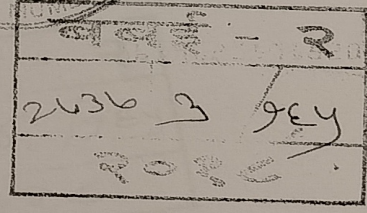 बबई - २
२५३७ ३ १६५
२०१८